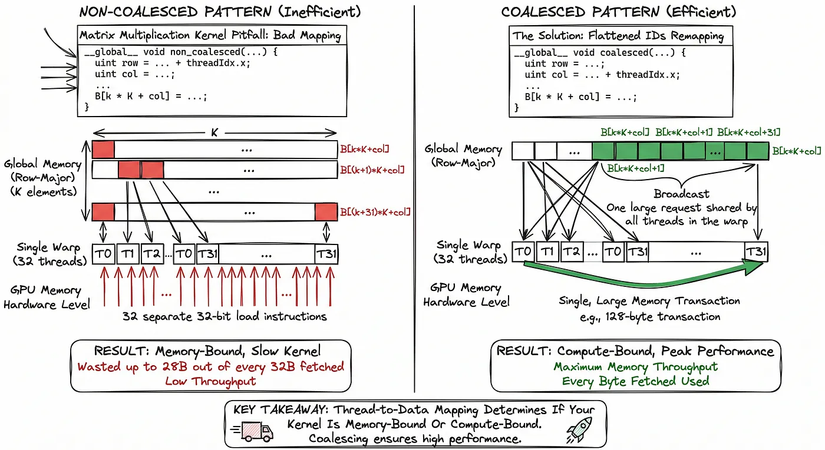 NON-COALESCED PATTERN (Inefficient)
Matrix Multiplication Kernel Pitfall: Bad Mapping
__global__ void non_coalesced(...) {
uint row = ... + threadIdx.x;
uint col = ...;
...
B[k * K + col] = ...;
}
K
Global Memory
(Row-Major)
(K elements)
...
B[k*K+col]
...
B[(k+1)*K+col]
...
...
B[(k+31)*K+col]
Single Warp
(32 threads)
T0 T1 T2 ... T0 T31 ... T31
GPU Memory
Hardware Level
... ...
32 separate 32-bit load instructions
RESULT: Memory-Bound, Slow Kernel
Wasted up to 28B out of every 32B fetched
Low Throughput
COALESCED PATTERN (Efficient)
The Solution: Flattened IDs Remapping
__global__ void coalesced(...) {
uint row = ...;
uint col = ... + threadIdx.x;
...
B[k * K + col] = ...;
}
B[k*K+col] B[k*K+col+1] B[k*K+col+31]
Global Memory
(Row-Major)
... ...
B[k*K+col]
B[k*K+col+1]
Broadcast
One large request shared by
all threads in the warp
Single Warp
(32 threads)
T0 T1 T2 ... T0 T31 ... T31
GPU Memory
Hardware Level
Single, Large Memory Transaction
e.g., 128-byte transaction
RESULT: Compute-Bound, Peak Performance
Maximum Memory Throughput
Every Byte Fetched Used
KEY TAKEAWAY: Thread-to-Data Mapping Determines If Your
Kernel Is Memory-Bound Or Compute-Bound.
Coalescing ensures high performance.